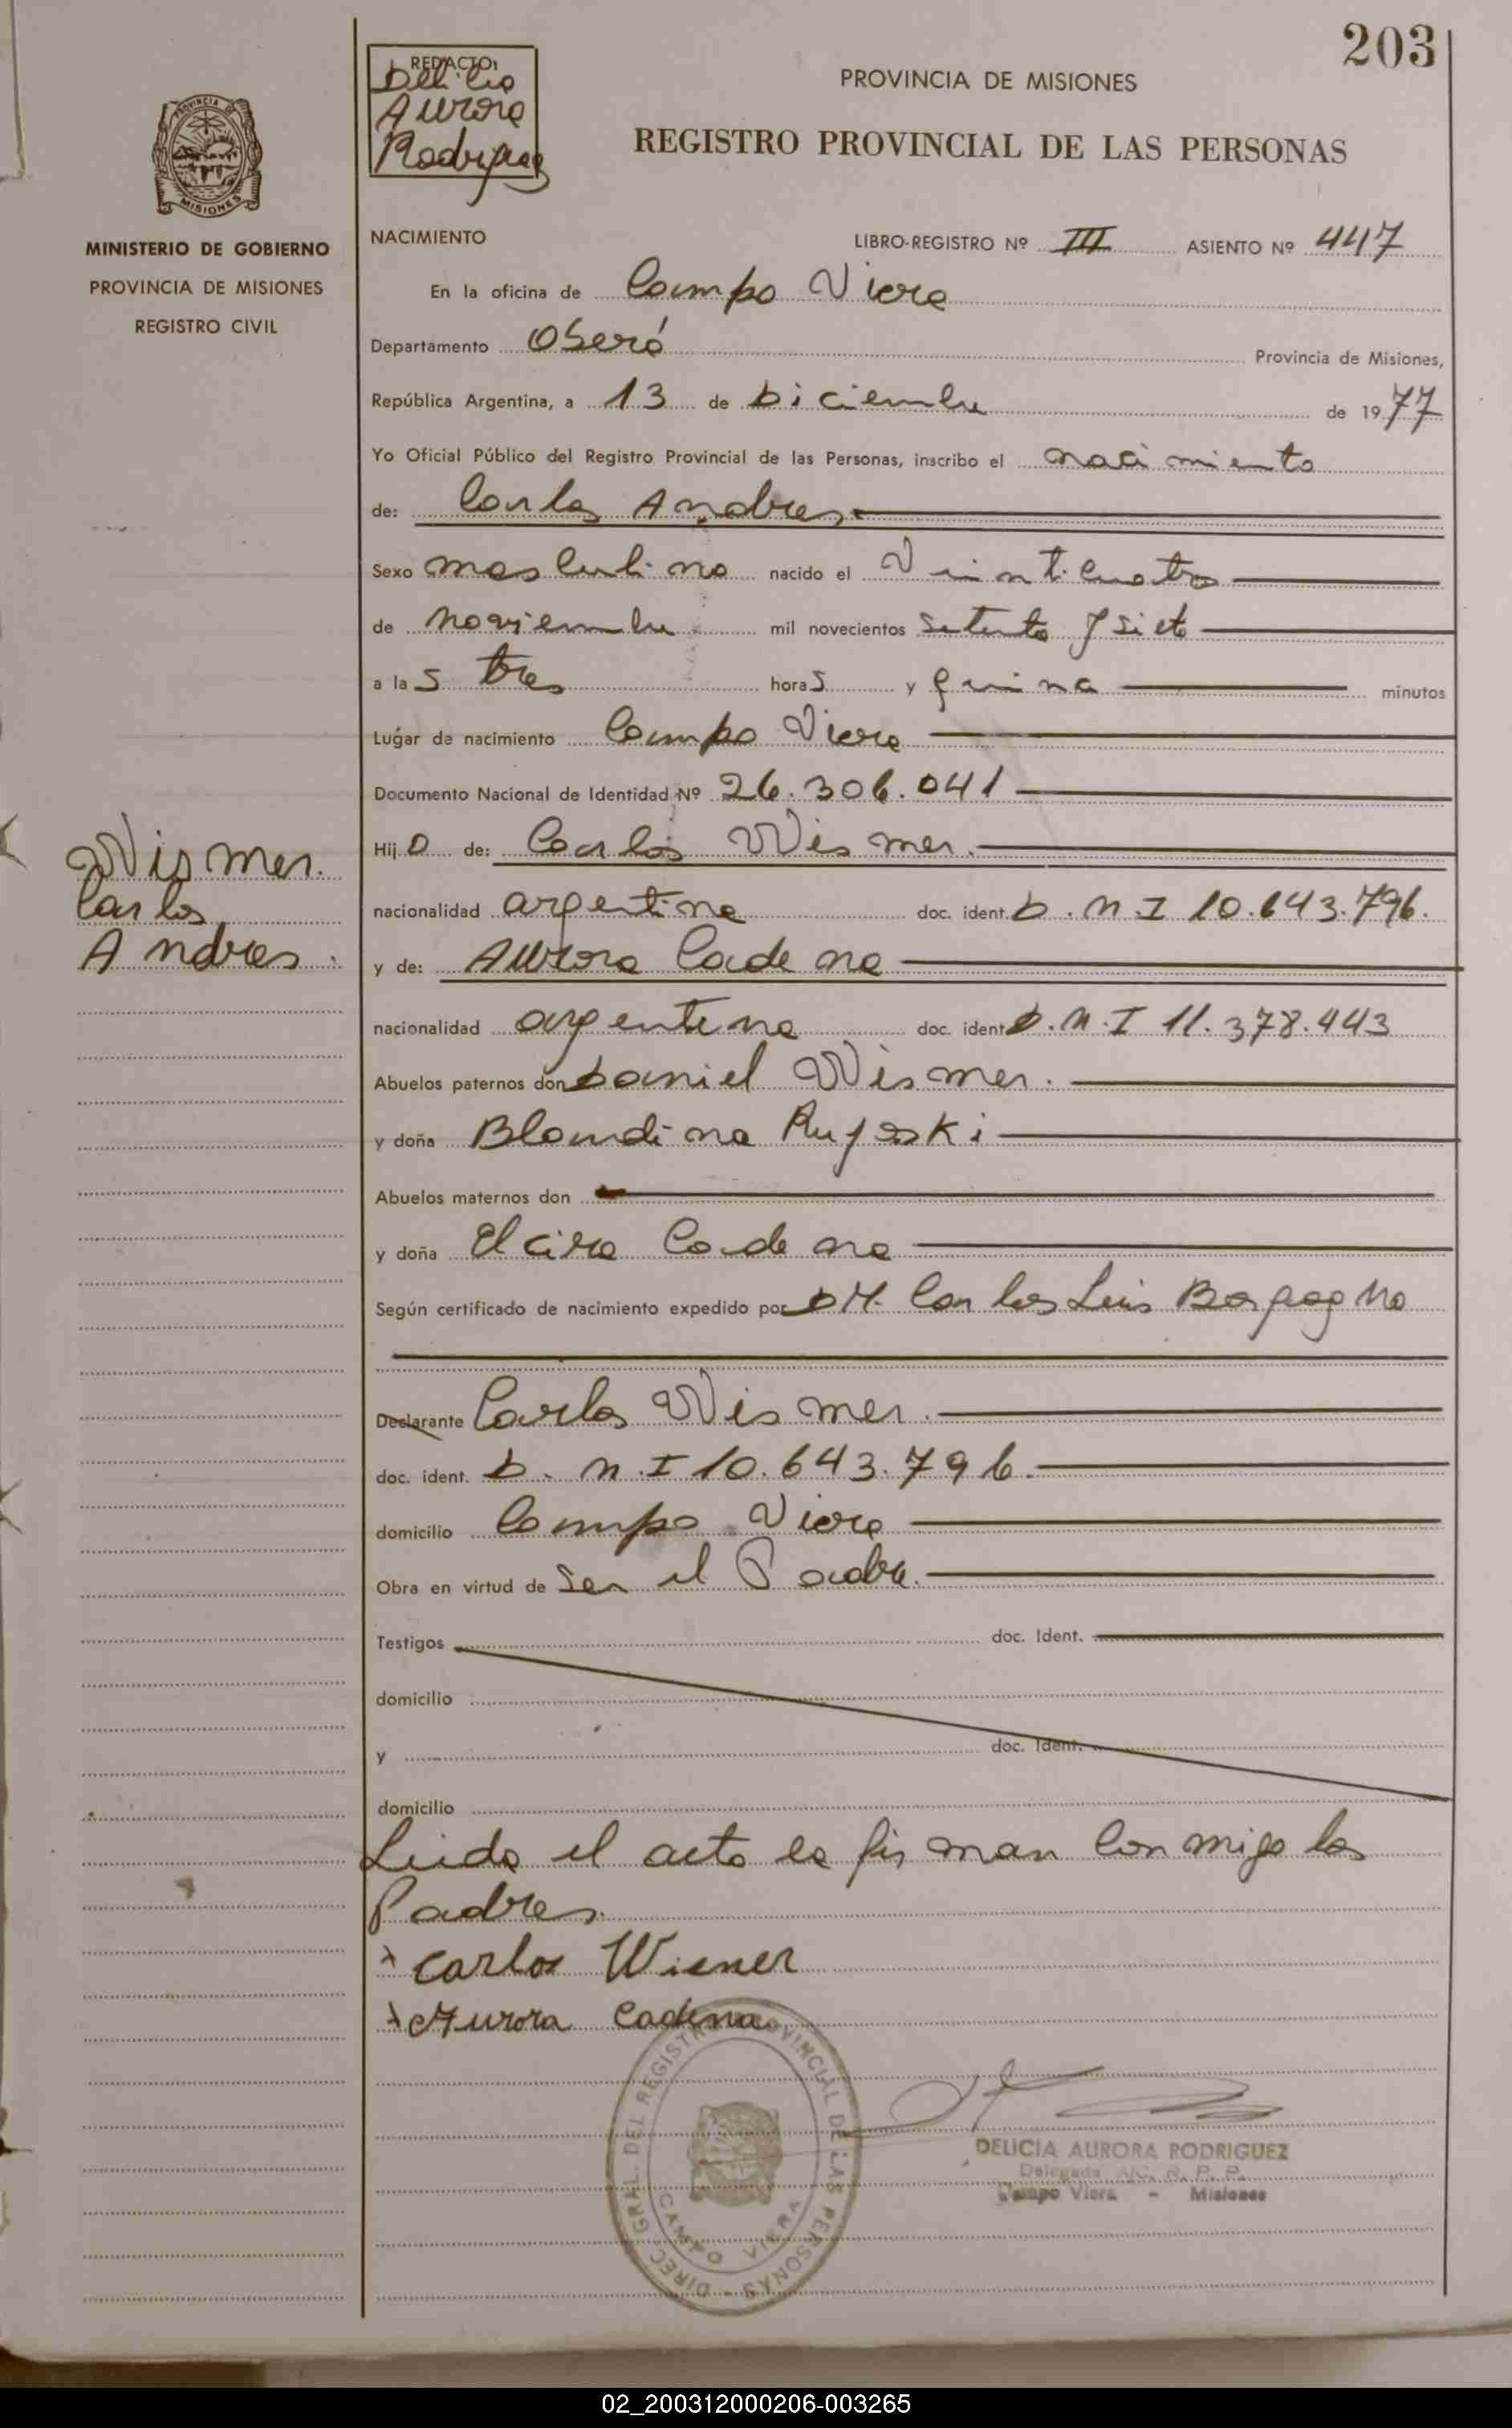 203
REDACTO:
Delicia
Aurora
Rodriguez
PROVINCIA DE MISIONES
REGISTRO PROVINCIAL DE LAS PERSONAS
MINISTERIO DE GOBIERNO
PROVINCIA DE MISIONES
REGISTRO CIVIL
NACIMIENTO LIBRO-REGISTRO Nº III ASIENTO Nº 447
En la oficina de Campo Viera
Departamento Oberá Provincia de Misiones,
República Argentina, a 13 de Diciembre de 1977
Yo Oficial Público del Registro Provincial de las Personas, inscribo el nacimiento
de: Carlos Andres
Sexo masculino nacido el Veinticuatro
de noviembre mil novecientos setenta y siete
a las tres horas y quince minutos
Lugar de nacimiento Campo Viera
Documento Nacional de Identidad Nº 26.306.041
Hijo de: Carlos Wismer.
Wismer.
Carlos
Andres.
nacionalidad argentina doc. ident. D.N.I 10.643.796.
y de: Aurora Cadena
nacionalidad argentina doc. ident D.N.I 11.378.443
Abuelos paternos don Daniel Wismer.
y doña Blondina
Abuelos maternos don
y doña Elcira Cadena
Según certificado de nacimiento expedido por DR. Carlos Luis Borgogno
Declarante Carlos Wismer.
doc. ident. D.N.I 10.643.796.
domicilio Campo Viera
Obra en virtud de Ser el Padre.
Testigos doc. Ident.
domicilio
y doc. Ident.
domicilio
Leida el acta la firman conmigo los
Padres.
x Carlos Wisner
x Aurora Cadena
DIREC. GRAL. DEL REGISTRO PROVINCIAL DE LAS PERSONAS
CAMPO VIERA
DELICIA AURORA RODRIGUEZ
Delegada R. P. P.
Campo Viera - Misiones
02_200312000206-003265